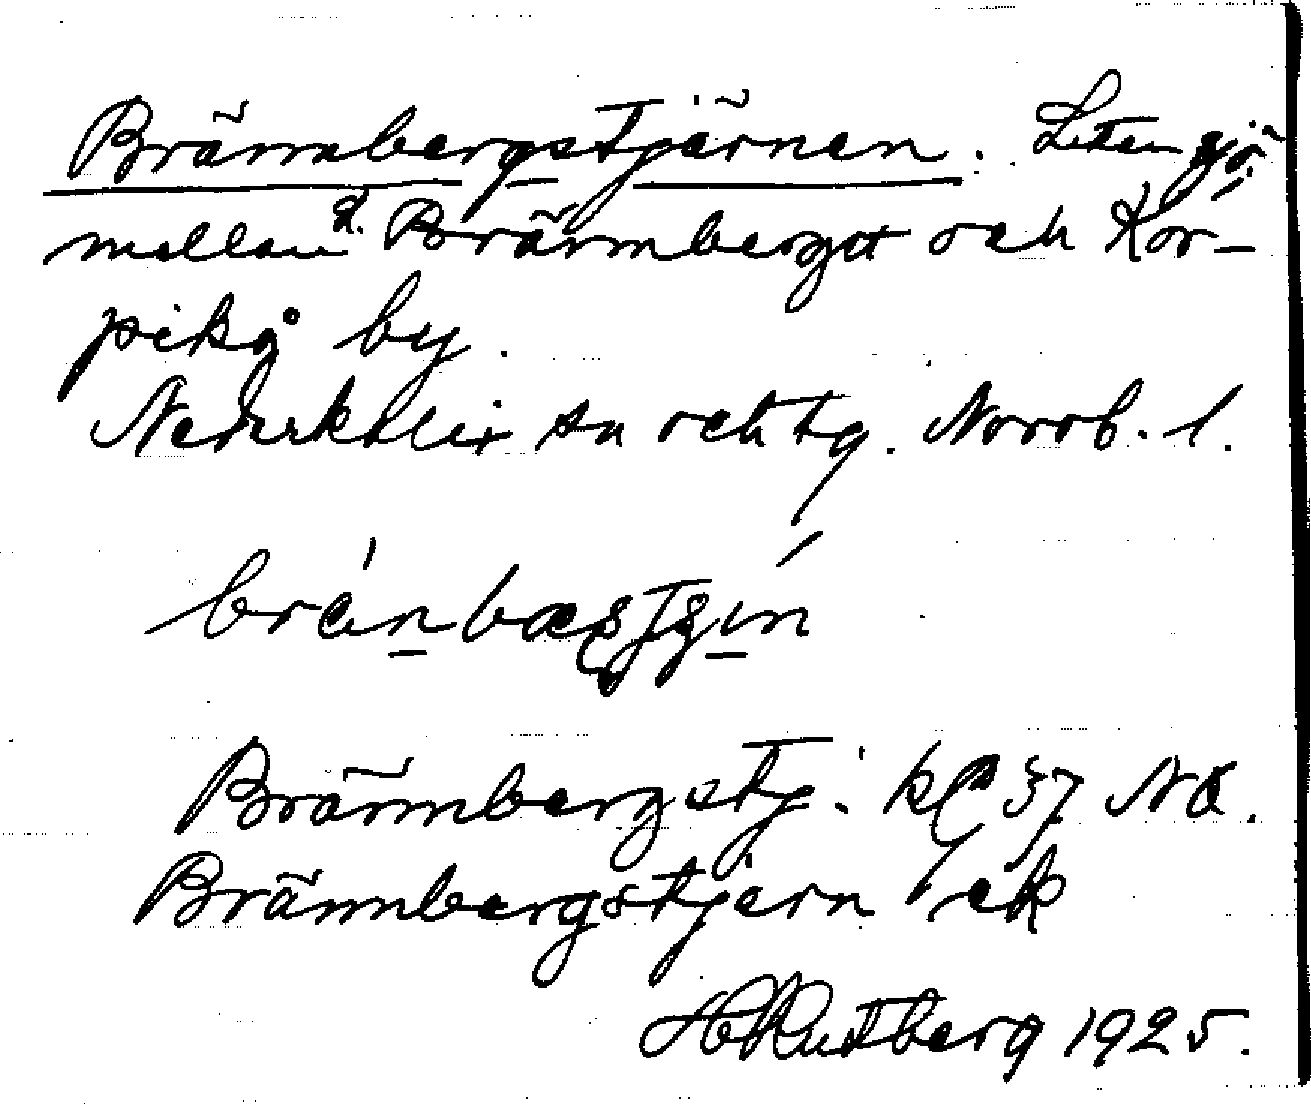 Brännbergstjärnen. Liten sjö
mellan St. Brännberget och Kor-
pikå by.
Nederkalix sn och tg. Norrb. l.
Brännbergstj. kbl 37 NO.
Brännbergstjern ek
H Rutberg 1925.